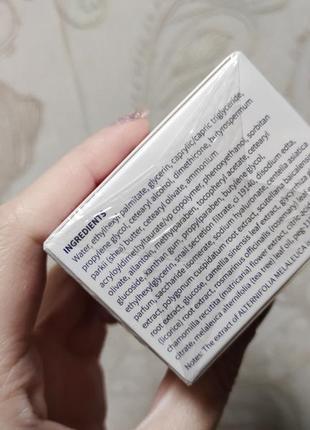 INGREDIENTS
Water, ethylhexyl palmitate, glycerin, caprylic/capric triglyceride,
propylene glycol, cetearyl alcohol, dimethicone, butyrospermum
parkii (shea) butter, cetearyl olivate, ammonium
acryloyldimethyltaurate/vp copolymer, phenoxyethanol, sorbitan
olivate, allantoin, methylparaben, tocopheryl acetate, cetearyl
glucoside, xanthan gum, propylparaben, butylene glycol,
ethylhexylglycerin, snail secretion filtrate, ci 19140, disodium edta,
parfum, saccharide isomerate, sodium hyaluronate, centella asiatica
extract, polygonum cuspidatum root extract, scutellaria
root extract, glucose, camellia sinensis leaf extract, glycyrrhiza
(licorice) root extract, rosmarinus officinalis (rosemary) leaf
chamomilla recutita (matricaria) flower extract,
citrate, melaleuca alternifolia (tea tree) leaf oil,
Notes: The extract of ALTERNIFOLIA MELALEUCA